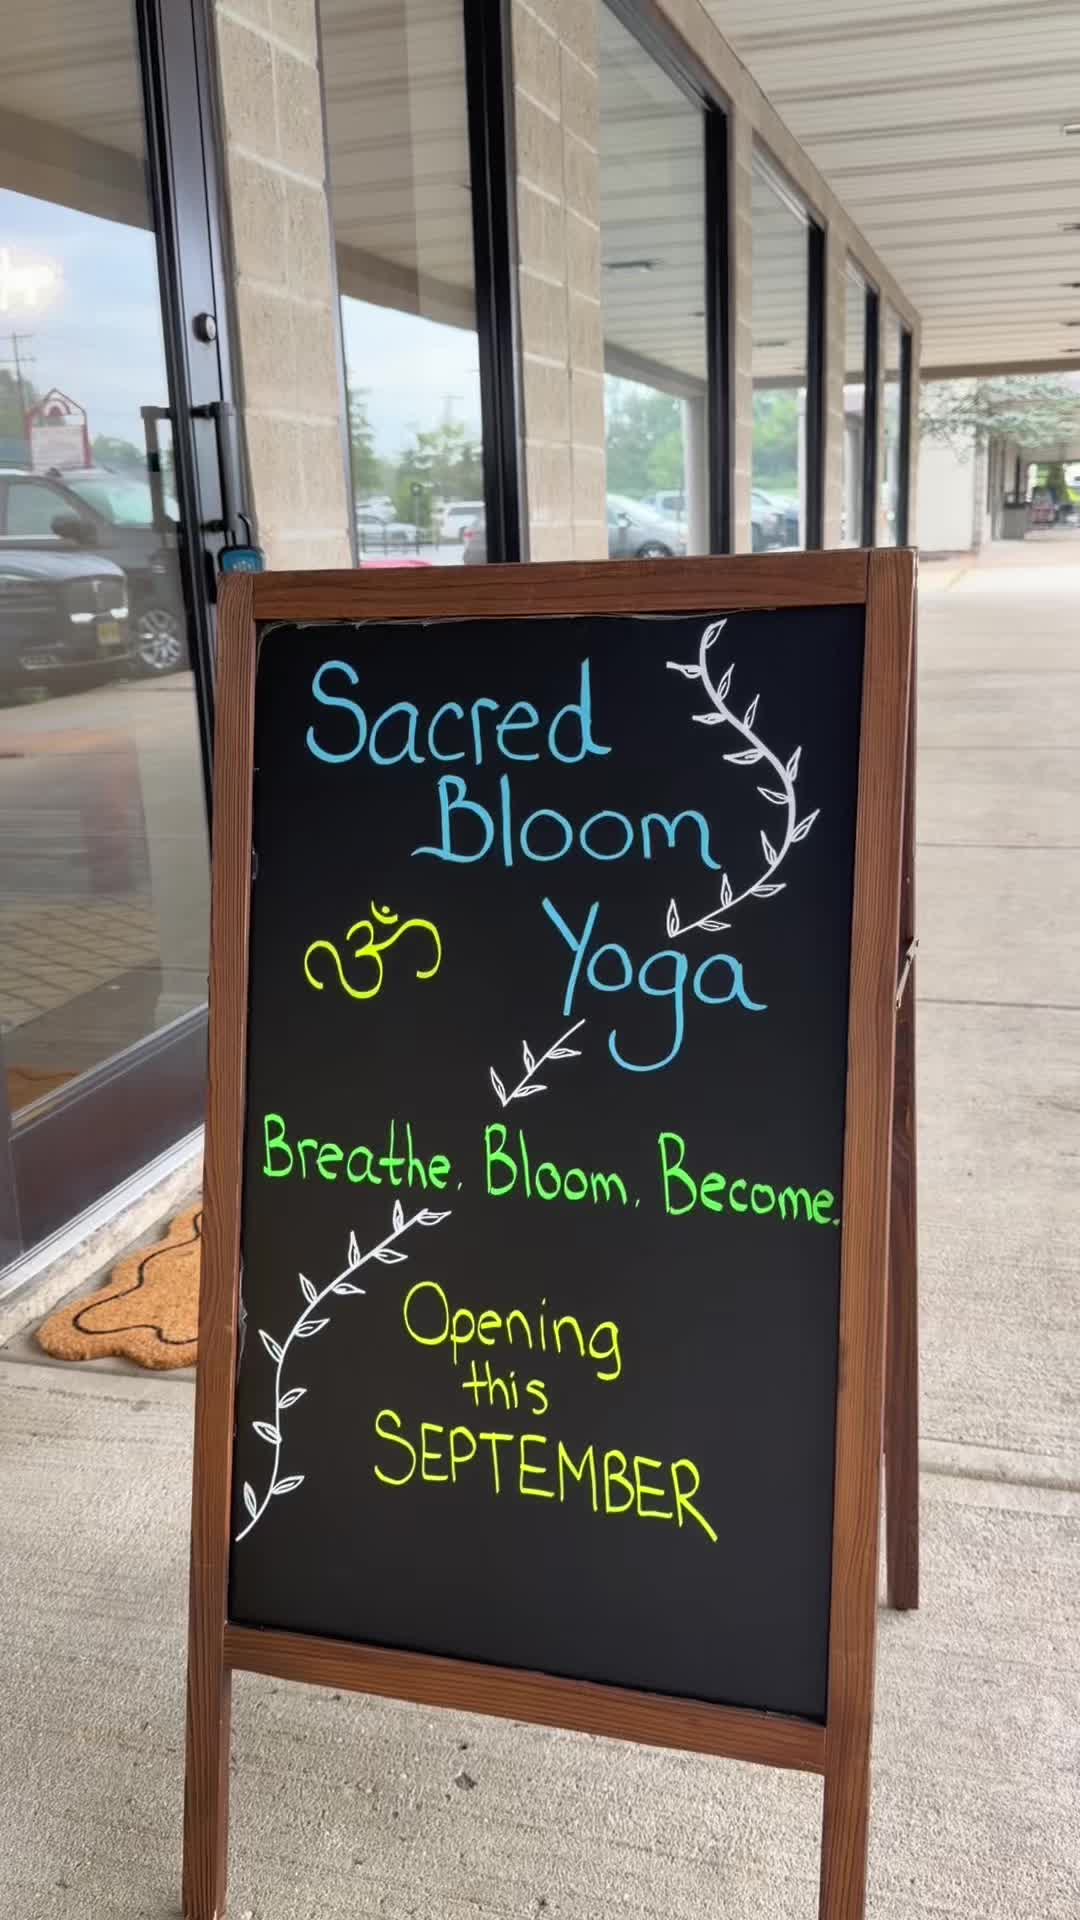 Sacred
Bloom
ॐ Yoga
Breathe. Bloom. Become.
Opening
this
SEPTEMBER